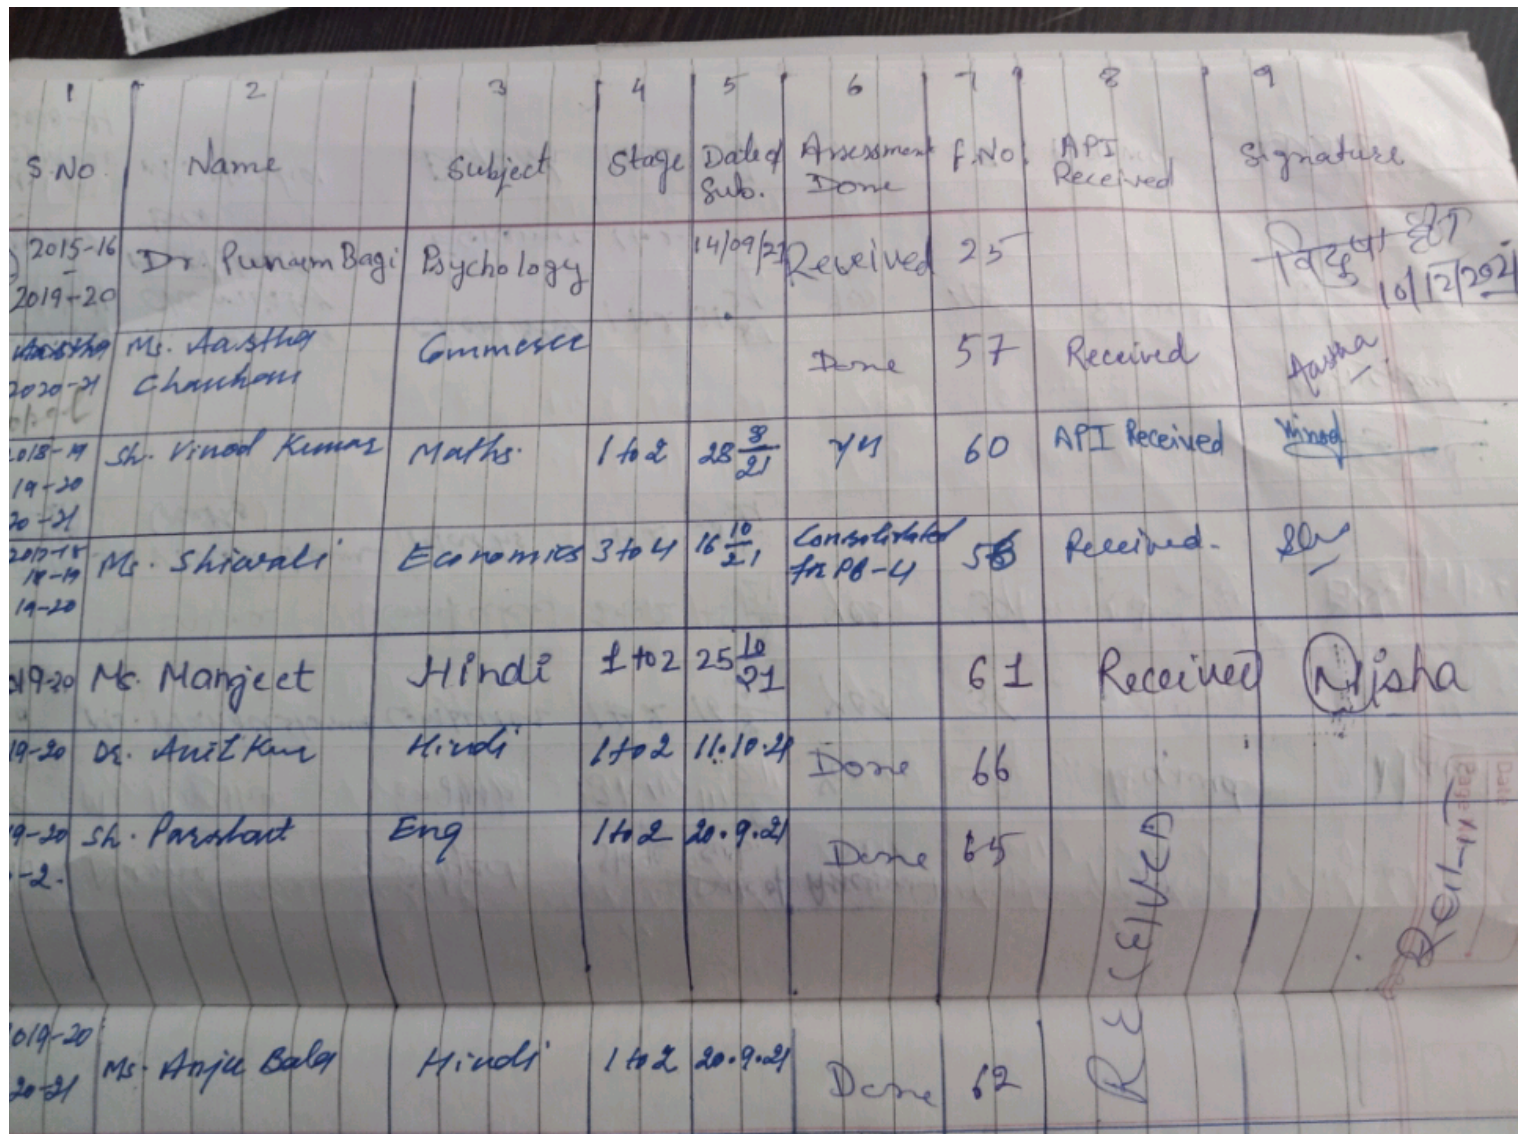 1 2 3 4 5 6 7 8 9
S.No Name Subject Stage Date of Sub. Assessment Done F.No. API Received Signature
2015-16 - 2019-20 Dr. Punam Bagi Psychology 14/09/21 Received 25 10/12/2021
2020-21 Ms. Aastha Chauhan Commerce Done 57 Received Aastha
2018-19 19-20 20-21 Sh. Vinod Kumar Maths. 1 to 2 28 8/21 yes 60 API Received Vinod
18-19 19-20 Ms. Shiwali Economics 3 to 4 16 10/21 Consolidated for PB-4 Received.
019-20 Ms. Manjeet Hindi 1 to 2 25 10/21 61 Received Nisha
19-20 Dr. Anil Kur Hindi 1 to 2 11.10.21 Done 66
9-20 -2. Sh. Parshant Eng 1 to 2 20.9.21 Done 65 RECEIVED
019-20 20-21 Ms. Anju Bala Hindi 1 to 2 20.9.21 Done 62
Date
Page No.